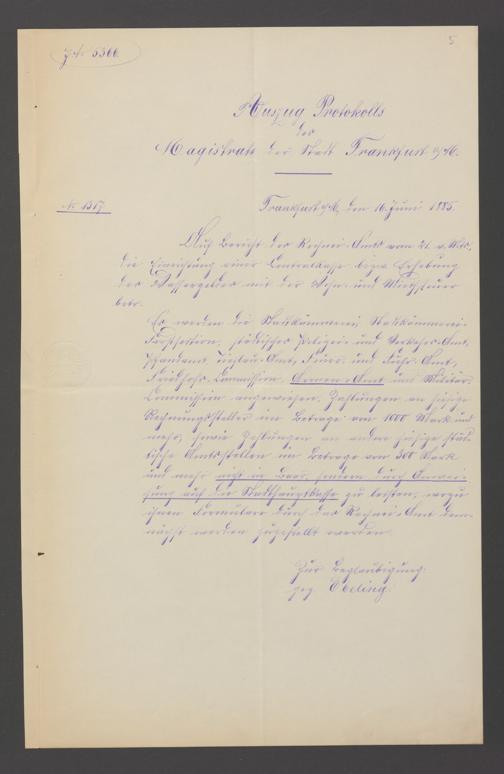 5
J. N. 5366
Auszug Protokolls
des
Magistrats der Stadt Frankfurt a/M.
No 1317
Frankfurt a/M, den 16. Juni 1885.
Auf Bericht des Rechnei-Amts vom 21. v. Mts.,
die Einrichtung einer Centralkasse bezw. Erhebung
des Wassergeldes mit der Wohn- und Miethsteuer
betr.
Es werden die Stadtkämmerei, Stadtkämmerei-
Forstsektion, städtisches Polizei- und Verkehrs-Amt,
Pfandamt, Tiefbau-Amt, Feuer- und Fuhr-Amt,
Friedhofs-Commission, Armen-Amt und Militär-
Commission angewiesen, Zahlungen an hiesige
Rechnungssteller im Betrage von 1000 Mark und
mehr, sowie Zahlungen an andere hiesige städ-
tische Amtsstellen im Betrage von 300 Mark
und mehr nicht in Baar, sondern durch Anwei-
sung auf die Stadthauptkasse zu leisten, wozu
ihnen Formulare durch das Rechnei-Amt dem-
nächst werden zugestellt werden.
Zur Beglaubigung:
gez. Ebeling.